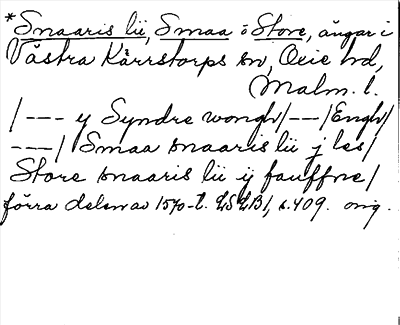 *Snaaris lii, Smaa o Store, ängar i
Västra Kärrstorps sn, Oxie hd,
Malm. l.
/--- y Syndre wongh/---/Engh/
---/ Smaa snaaris lii j les/
Store snaaris lii ij fauffne/
förra delen av 1570-t. LSLB1, s.409. orig.